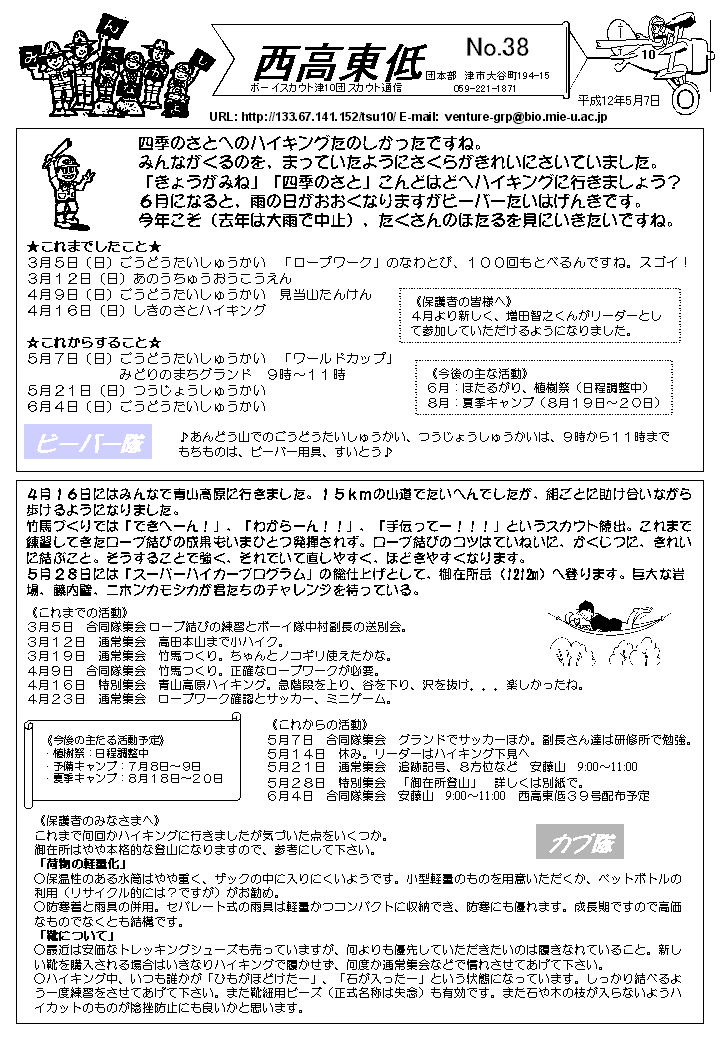 みんなしし
西高東低 No.38
ボーイスカウト津10団 スカウト通信
団本部 津市大谷町194-15
059-221-1871
10
平成12年5月7日
URL: http://133.67.141.152/tsu10/ E-mail: venture-grp@bio.mie-u.ac.jp
四季のさとへのハイキングたのしかったですね。
みんながくるのを、まっていたようにさくらがきれいにさいていました。
「きょうがみね」「四季のさと」こんどはどへハイキングに行きましょう？
６月になると、雨の日がおおくなりますがビーバーたいはげんきです。
今年こそ（去年は大雨で中止）、たくさんのほたるを見にいきたいですね。
★これまでしたこと★
３月５日（日）ごうどうたいしゅうかい 「ロープワーク」のなわとび、１００回もとべるんですね。スゴイ！
３月１２日（日）あのうちゅうおうこうえん
４月９日（日）ごうどうたいしゅうかい 見当山たんけん
４月１６日（日）しきのさとハイキング
《保護者の皆様へ》
４月より新しく、増田智之くんがリーダーとし
て参加していただけるようになりました。
★これからすること★
５月７日（日）ごうどうたいしゅうかい 「ワールドカップ」
みどりのまちグランド ９時～１１時
５月２１日（日）つうじょうしゅうかい
６月４日（日）ごうどうたいしゅうかい
《今後の主な活動》
６月：ほたるがり、植樹祭（日程調整中）
８月：夏季キャンプ（８月１９日～２０日）
ビーバー隊
♪あんどう山でのごうどうたいしゅうかい、つうじょうしゅうかいは、９時から１１時まで
もちものは、ビーバー用具、すいとう♪
４月１６日にはみんなで青山高原に行きました。１５ｋｍの山道でたいへんでしたが、組ごとに助け合いながら
歩けるようになりました。
竹馬づくりでは「できへーん！」、「わからーん！！」、「手伝ってー！！！」というスカウト続出。これまで
練習してきたロープ結びの成果もいまひとつ発揮されず。ロープ結びのコツはていねいに、かくじつに、きれい
に結ぶこと。そうすることで強く、それでいて直しやすく、ほどきやすくなります。
５月２８日には「スーパーハイカープログラム」の総仕上げとして、御在所岳（1212m）へ登ります。巨大な岩
場、藤内壁、ニホンカモシカが君たちのチャレンジを待っている。
《これまでの活動》
３月５日 合同隊集会 ロープ結びの練習とボーイ隊中村副長の送別会。
３月１２日 通常集会 高田本山まで小ハイク。
３月１９日 通常集会 竹馬つくり。ちゃんとノコギリ使えたかな。
４月９日 合同隊集会 竹馬つくり。正確なロープワークが必要。
４月１６日 特別集会 青山高原ハイキング。急階段を上り、谷を下り、沢を抜け．．．楽しかったね。
４月２３日 通常集会 ロープワーク確認とサッカー、ミニゲーム。
《今後の主たる活動予定》
・植樹祭：日程調整中
・予備キャンプ：７月８日～９日
・夏季キャンプ：８月１８日～２０日
《これからの活動》
５月７日 合同隊集会 グランドでサッカーほか。副長さん達は研修所で勉強。
５月１４日 休み。リーダーはハイキング下見へ
５月２１日 通常集会 追跡記号、８方位など 安藤山 9:00～11:00
５月２８日 特別集会 「御在所登山」 詳しくは別紙で。
６月４日 合同隊集会 安藤山 9:00～11:00 西高東低３９号配布予定
カブ隊
《保護者のみなさまへ》
これまで何回かハイキングに行きましたが気づいた点をいくつか。
御在所はやや本格的な登山になりますので、参考にして下さい。
「荷物の軽量化」
○保温性のある水筒はやや重く、ザックの中に入りにくいようです。小型軽量のものを用意いただくか、ペットボトルの
利用（リサイクル的には？ですが）がお勧め。
○防寒着と雨具の併用。セパレート式の雨具は軽量かつコンパクトに収納でき、防寒にも優れます。成長期ですので高価
なものでなくとも結構です。
「靴について」
○最近は安価なトレッキングシューズも売っていますが、何よりも優先していただきたいのは履きなれていること。新し
い靴を購入される場合はいきなりハイキングで履かせず、何度か通常集会などで慣れさせてあげて下さい。
○ハイキング中、いつも誰かが「ひもがほどけたー」、「石が入ったー」という状態になっています。しっかり結べるよ
う一度練習をさせてあげて下さい。また靴紐用ビーズ（正式名称は失念）も有効です。また石や木の枝が入らないようハ
イカットのものが捻挫防止にも良いかと思います。